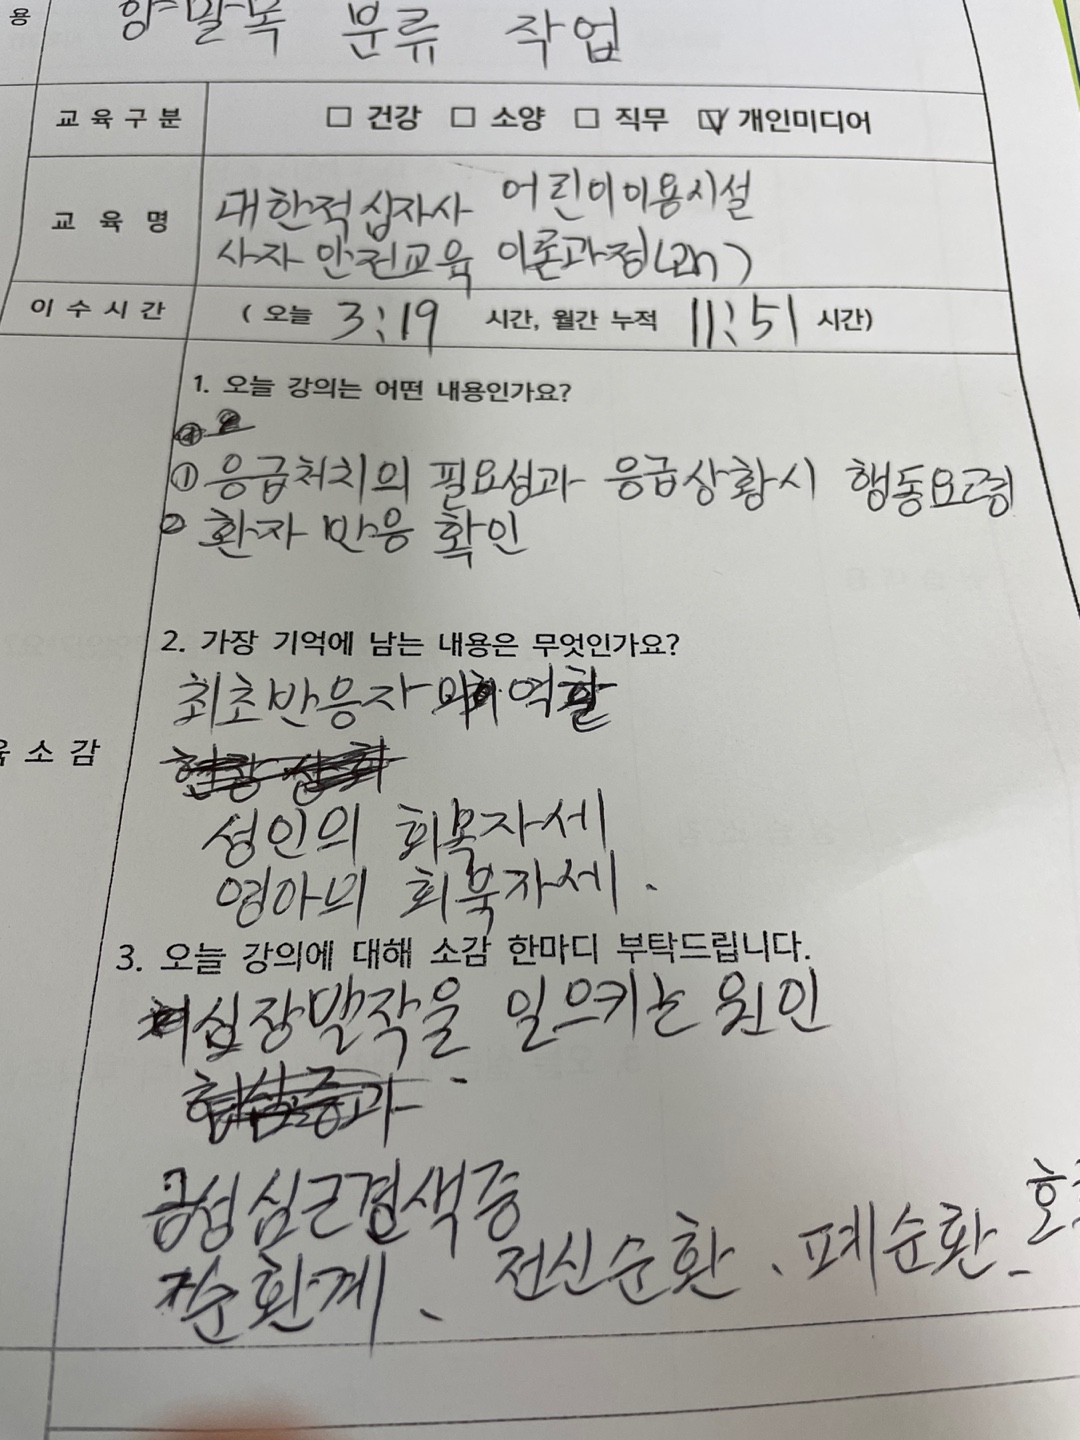 용 양말목 분류 작업
교육구분 □ 건강 □ 소양 □ 직무 ☑ 개인미디어
교육명 대한적십자사 어린이이용시설
사자 안전교육 이론과정(2h)
이수시간 (오늘 3:19 시간, 월간 누적 11:51 시간)
1. 오늘 강의는 어떤 내용인가요?
① 응급처치의 필요성과 응급상황시 행동요령
② 환자 반응 확인
2. 가장 기억에 남는 내용은 무엇인가요?
최초반응자의 역할
소감
성인의 회복자세
영아의 회복자세.
3. 오늘 강의에 대해 소감 한마디 부탁드립니다.
심장발작을 일으키는 원인
급성심근경색증
순환계、 전신순환、폐순환